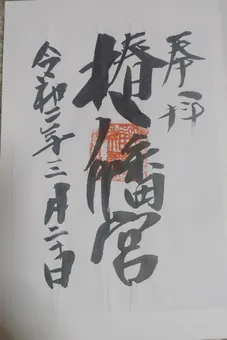 奉拝
椿八幡宮
令和二年三月二十日